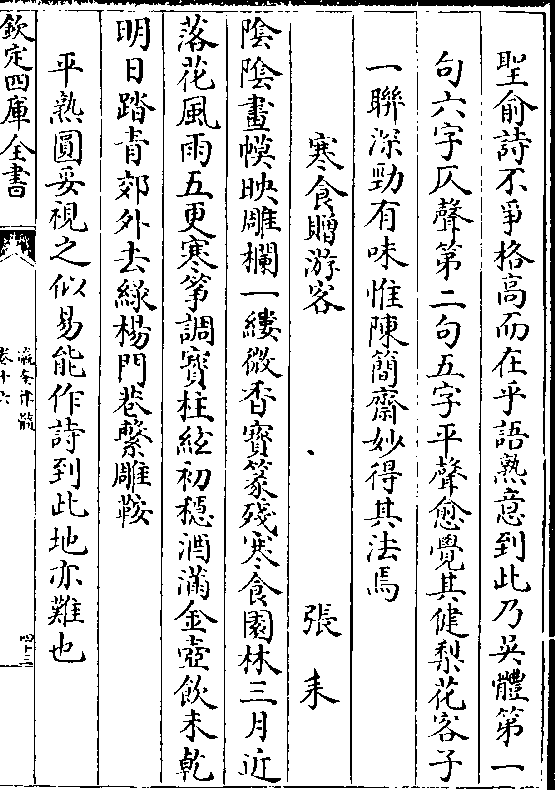 聖俞詩不爭格高而在乎語熟意到此乃吳體第一
句六字仄聲第二句五字平聲愈覺其健梨花客子
一聯深勁有味惟陳簡齋妙得其法焉
寒食贈游客　張耒
陰陰畫幙映雕欄一縷微香寶篆殘寒食園林三月近
落花風雨五更寒筝調寶柱絃初穩酒滿金壺飲未乾
明日踏青郊外去緑楊門巷繫雕鞍
平熟圓妥視之似易能作詩到此地亦難也
欽定四庫全書
瀛奎律髓
卷十六
四十三